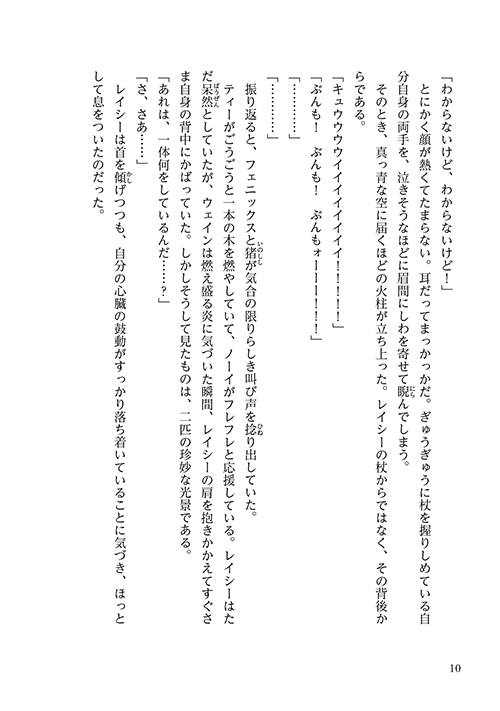 「わからないけど、わからないけど！」
　とにかく顔が熱くてたまらない。耳だってまっかっかだ。ぎゅうぎゅうに杖を握りしめている自
分自身の両手を、泣きそうなほどに眉間にしわを寄せて睨んでしまう。
　そのとき、真っ青な空に届くほどの火柱が立ち上った。レイシーの杖からではなく、その背後か
らである。
「キュウウウウイイイイイイイイ！！！！！」
「ぶんも！　ぶんも！　ぶんもォーーー！！！！」
「…………」
「…………」
　振り返ると、フェニックスと猪が気合の限りらしき叫び声を捻り出していた。
　ティーがごうごうと一本の木を燃やしていて、ノーイがフレフレと応援している。レイシーはた
だ呆然としていたが、ウェインは燃え盛る炎に気づいた瞬間、レイシーの肩を抱きかかえてすぐさ
ま自身の背中にかばっていた。しかしそうして見たものは、二匹の珍妙な光景である。
「あれは、一体何をしているんだ……？」
「さ、さあ……」
　レイシーは首を傾げつつも、自分の心臓の鼓動がすっかり落ち着いていることに気づき、ほっと
して息をついたのだった。
10